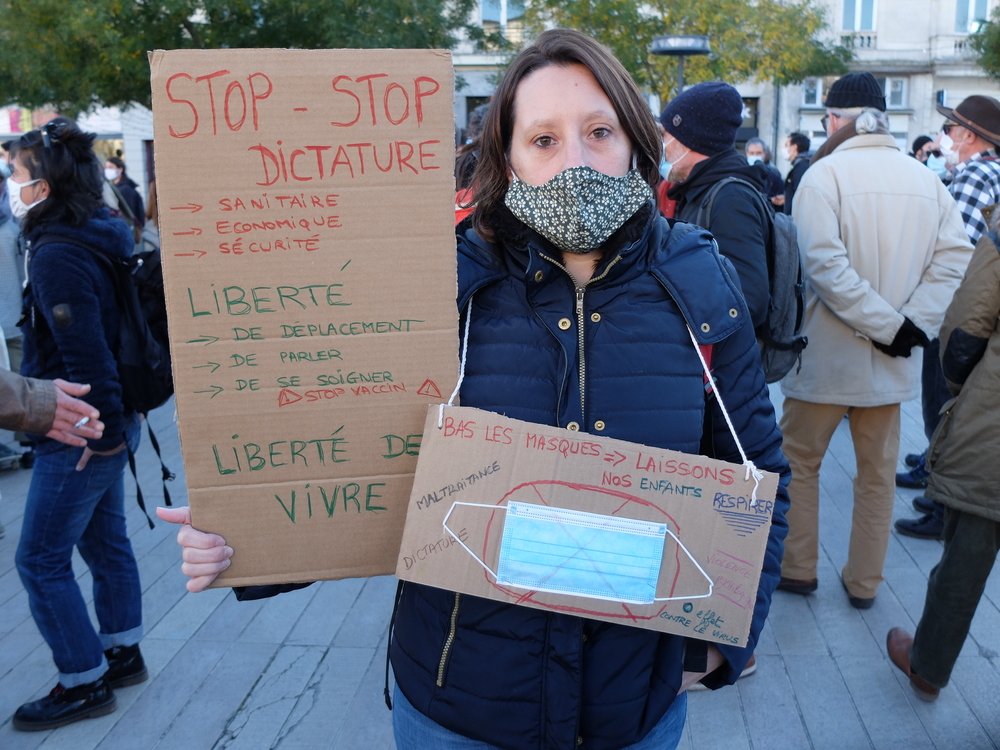 STOP - STOP
DICTATURE
→ SANITAIRE
→ ECONOMIQUE
→ SÉCURITÉ
LIBERTÉ
→ DE DÉPLACEMENT
→ DE PARLER
→ DE SE SOIGNER
STOP VACCIN
LIBERTÉ DE
VIVRE
BAS LES MASQUES => LAISSONS
NOS ENFANTS
RESPIRER
MALTRAITANCE
DICTATURE
VIOLENCE
0 effet
CONTRE LE VIRUS